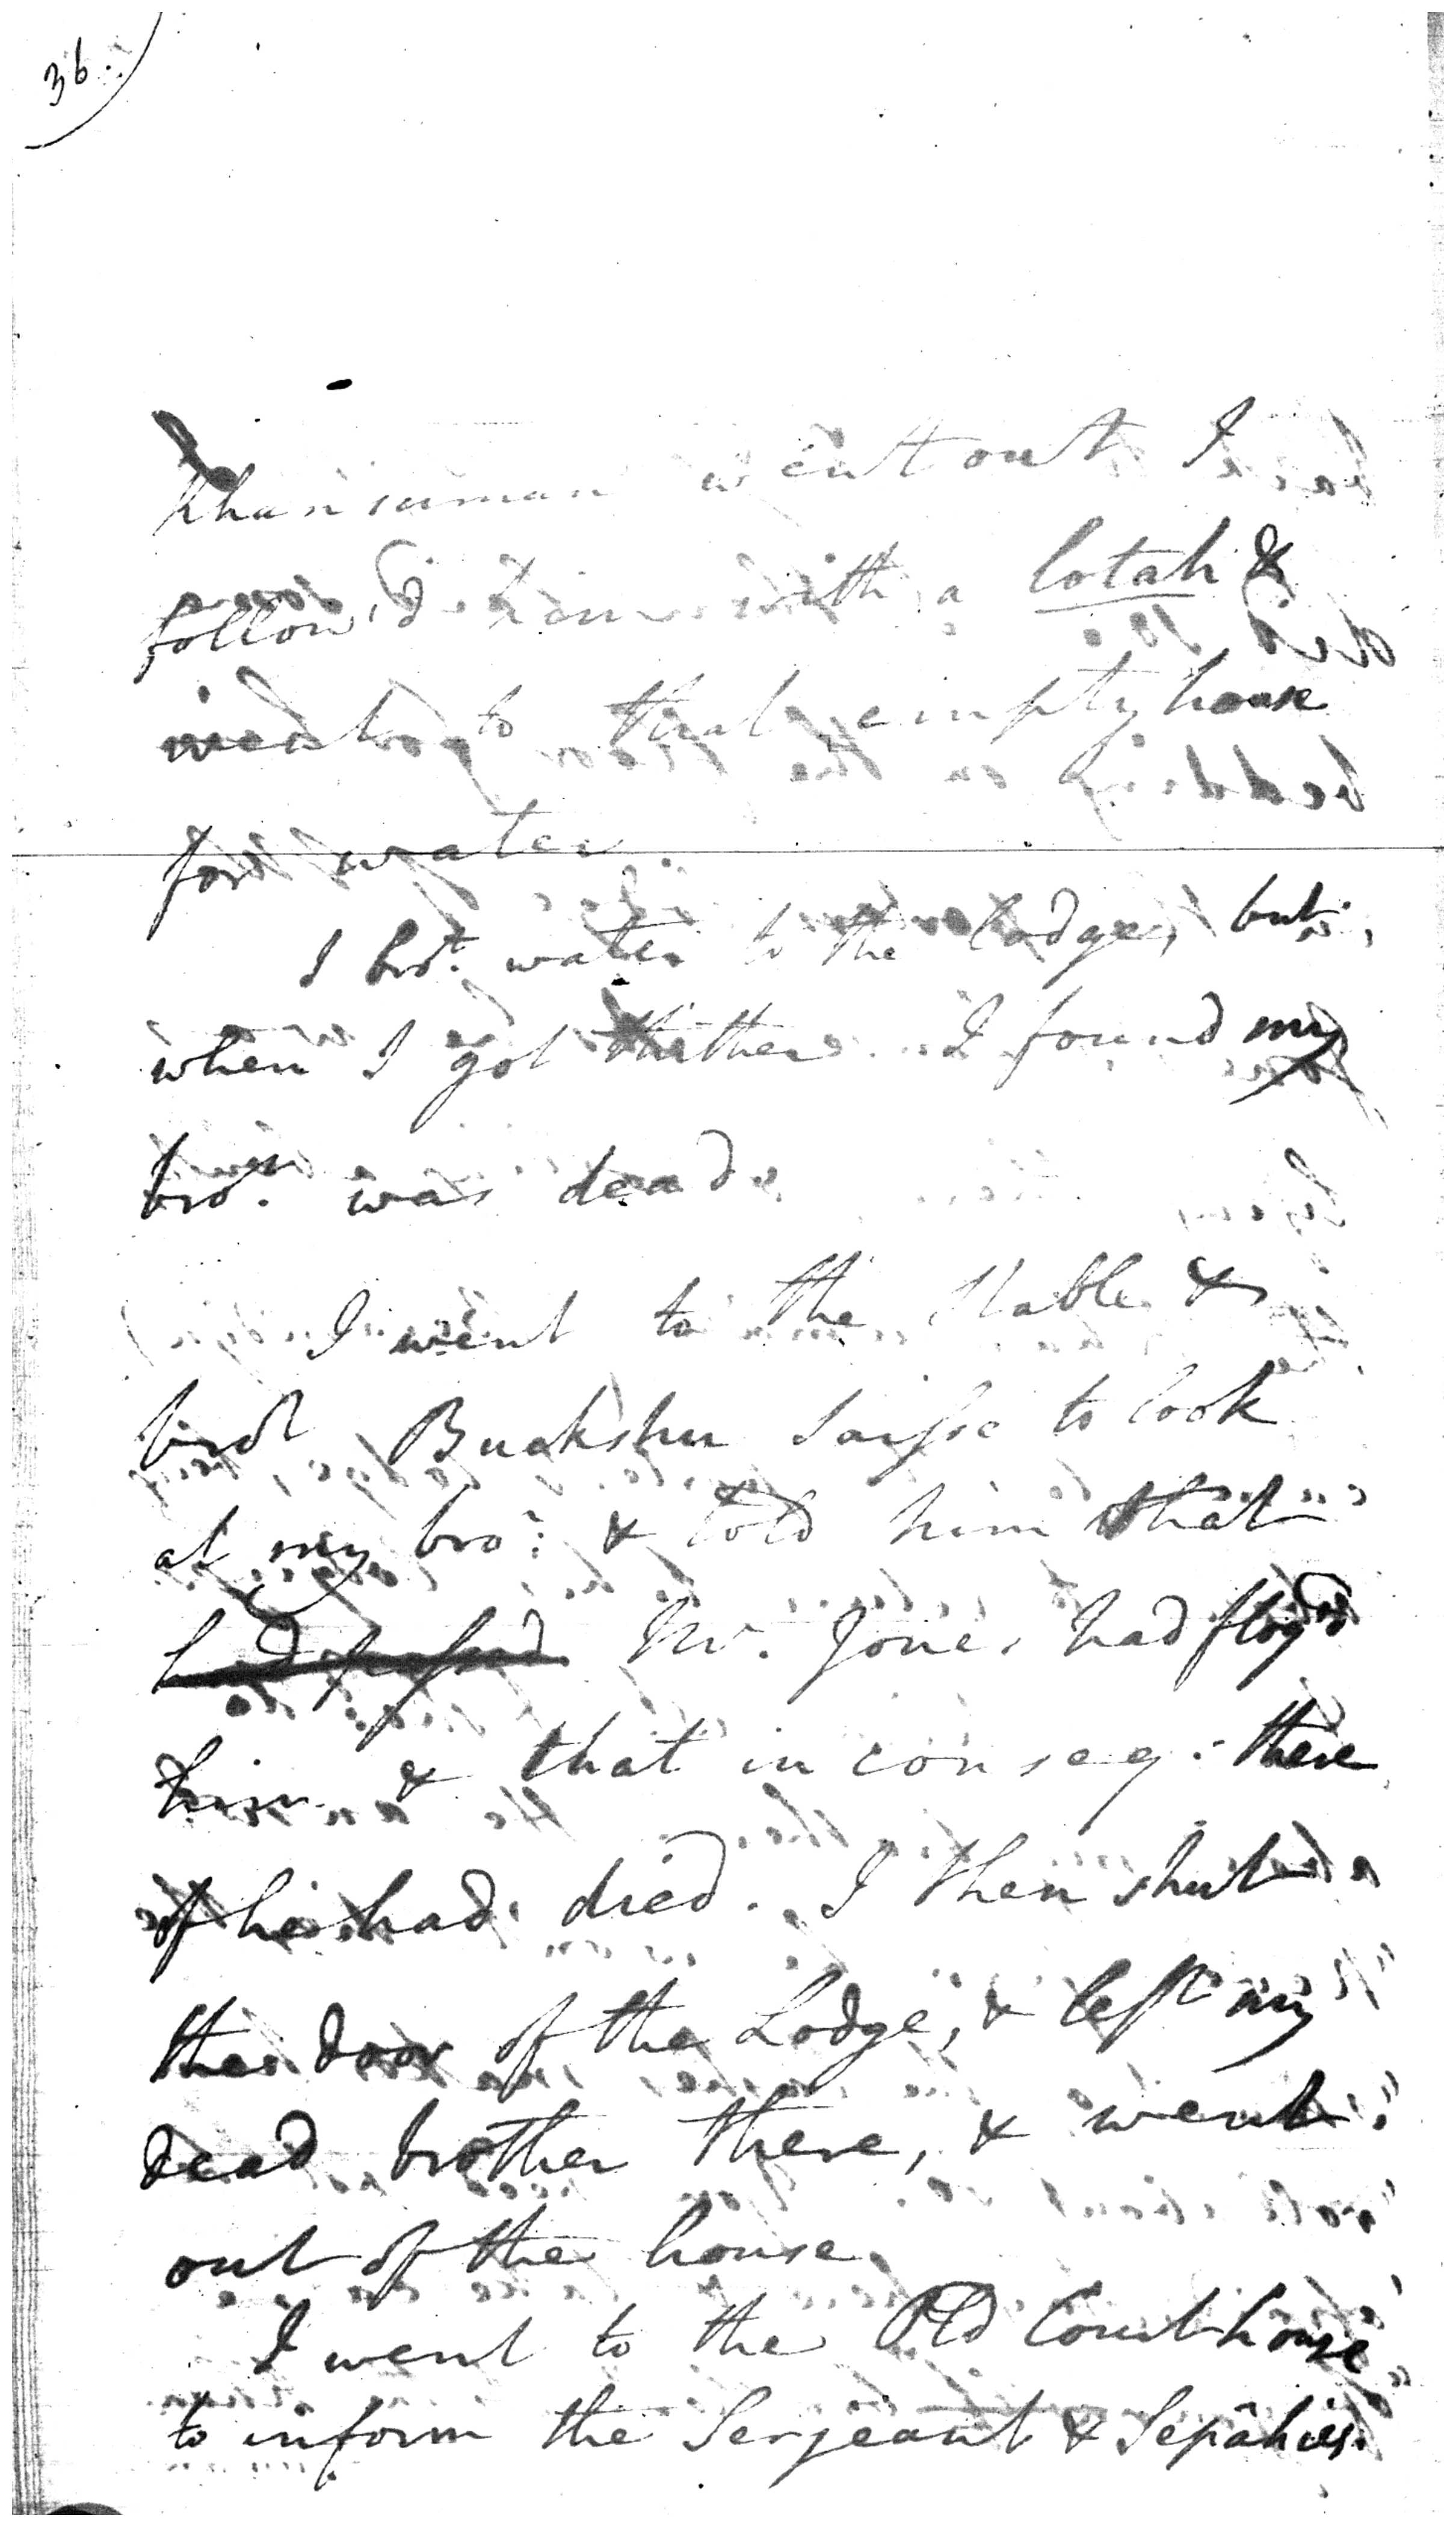 36.
Khansuman went out I
follow'd him with a lotah &
went to that empty house
for water
I brot. water to the Lodge, but,
when I got thither I found my
bror. was dead.
I went to the stable &
brot Buckshu Saisse to look
at my bror. & told him that
Mr. Jones had flog'd
him & that in conseq: there
of he had died. I then shut
the door of the Lodge, & left my
dead brother there, & went
out of the house.
I went to the Old Court house
to inform the Serjeant & Sepâhies.